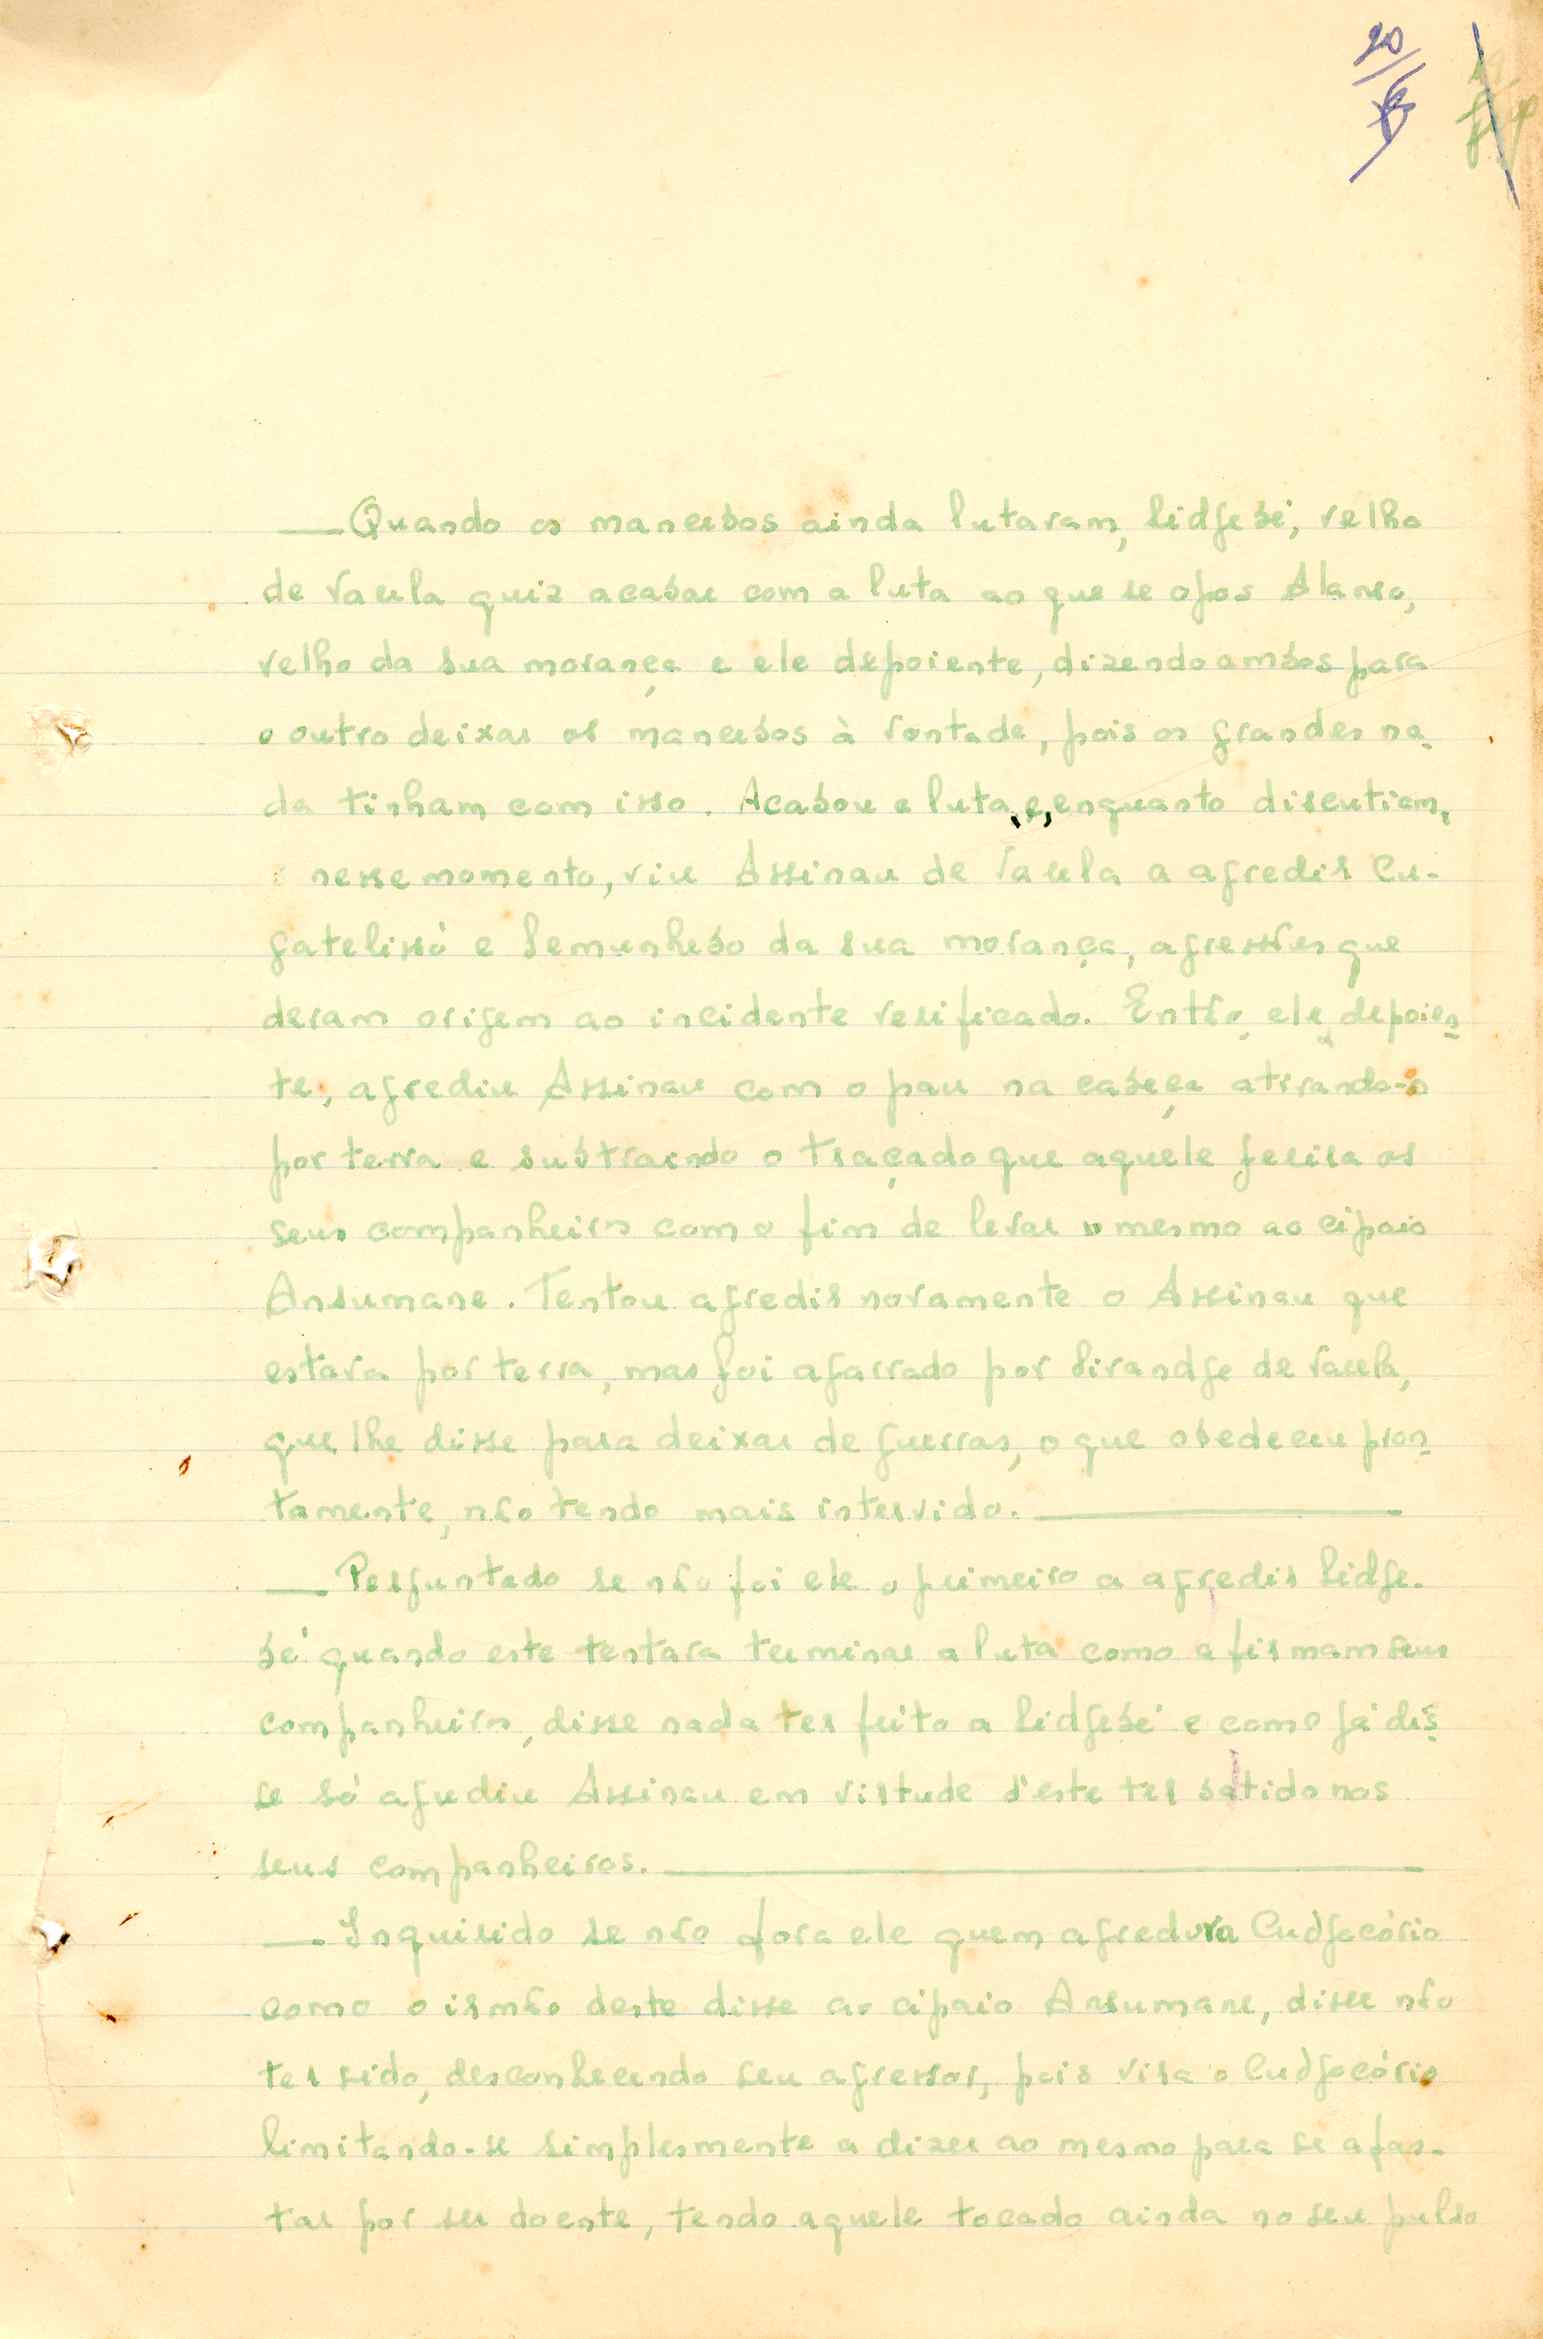 20
— Quando os mancebos ainda lutavam, Sidgebé, velho
de Varela quiz acabar com a luta ao que se opos Alanso,
velho da sua morança e ele depoiente, dizendo ambos para
o outro deixar os mancebos à vontade, pois os grandes na
da tinham com isso. Acabou a luta, e, enquanto discutiam,
nesse momento, viu Assinau de Varela a agredir Cu-
gatelissó e Semunhebo da sua morança, agressões que
deram origem ao incidente verificado. Então, ele, depoien
te, agrediu Assinau com o pau na cabeça atirando-o
por terra e subtraindo o traçado que aquele ferira os
seus companheiros com o fim de levar o mesmo ao cipaio
Ansumane. Tentou agredir novamente o Assinau que
estava por terra, mas foi agarrado por Sirandge de Varela,
que lhe disse para deixar de guerras, o que obedeceu pron
tamente, não tendo mais intervido. —
— Perguntado se não foi ele o primeiro a agredir Sidge-
bé quando este tentara terminar a luta como afirmam seus
companheiros, disse nada ter feito a Sidgebé e como já dis
se só agrediu Assinau em virtude d'este ter batido nos
seus companheiros. —
— Inquirido se não fora ele quem agredira Cudjocório
como o irmão deste disse ao cipaio Ansumane, disse não
ter sido, desconhecendo seu agressor, pois vira o Cudjocório
limitando-se simplesmente a dizer ao mesmo para se afas-
tar por ser doente, tendo aquele tocado ainda no seu pulso